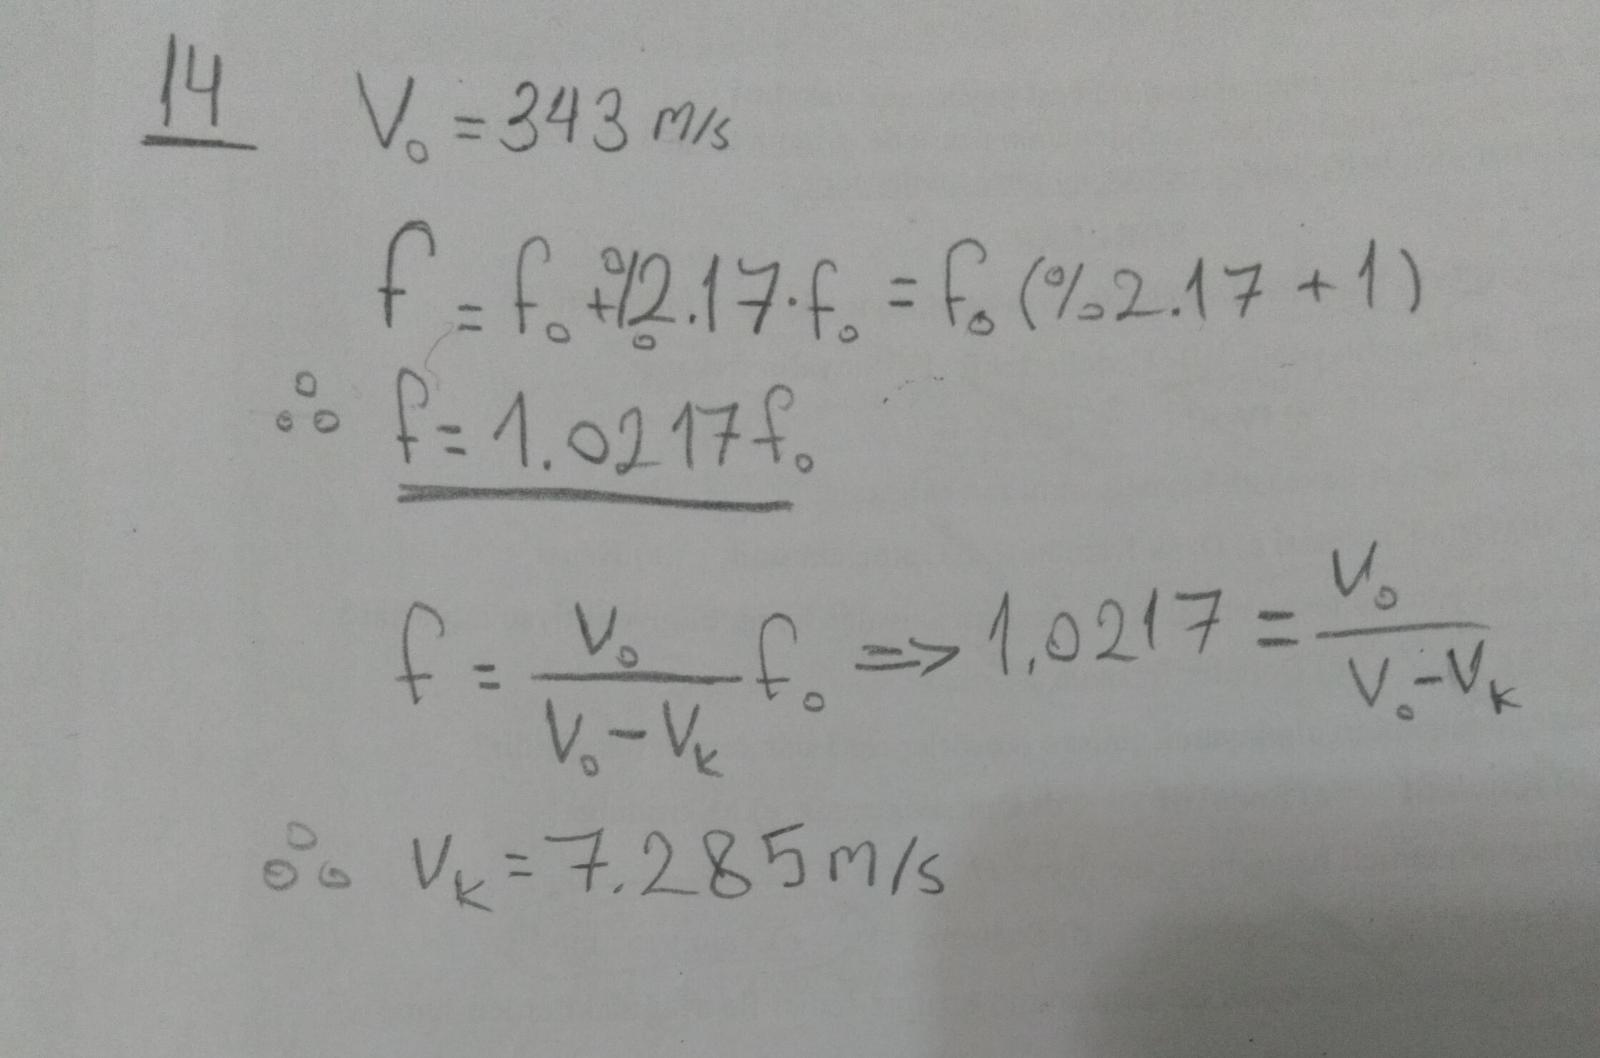 14 V₀ = 343 m/s
f = f₀ + %2.17·f₀ = f₀ (%2.17 + 1)
∴ f = 1.0217f₀
f = V₀/(V₀ - Vₖ) f₀ => 1.0217 = V₀/(V₀ - Vₖ)
∴ Vₖ = 7.285 m/s